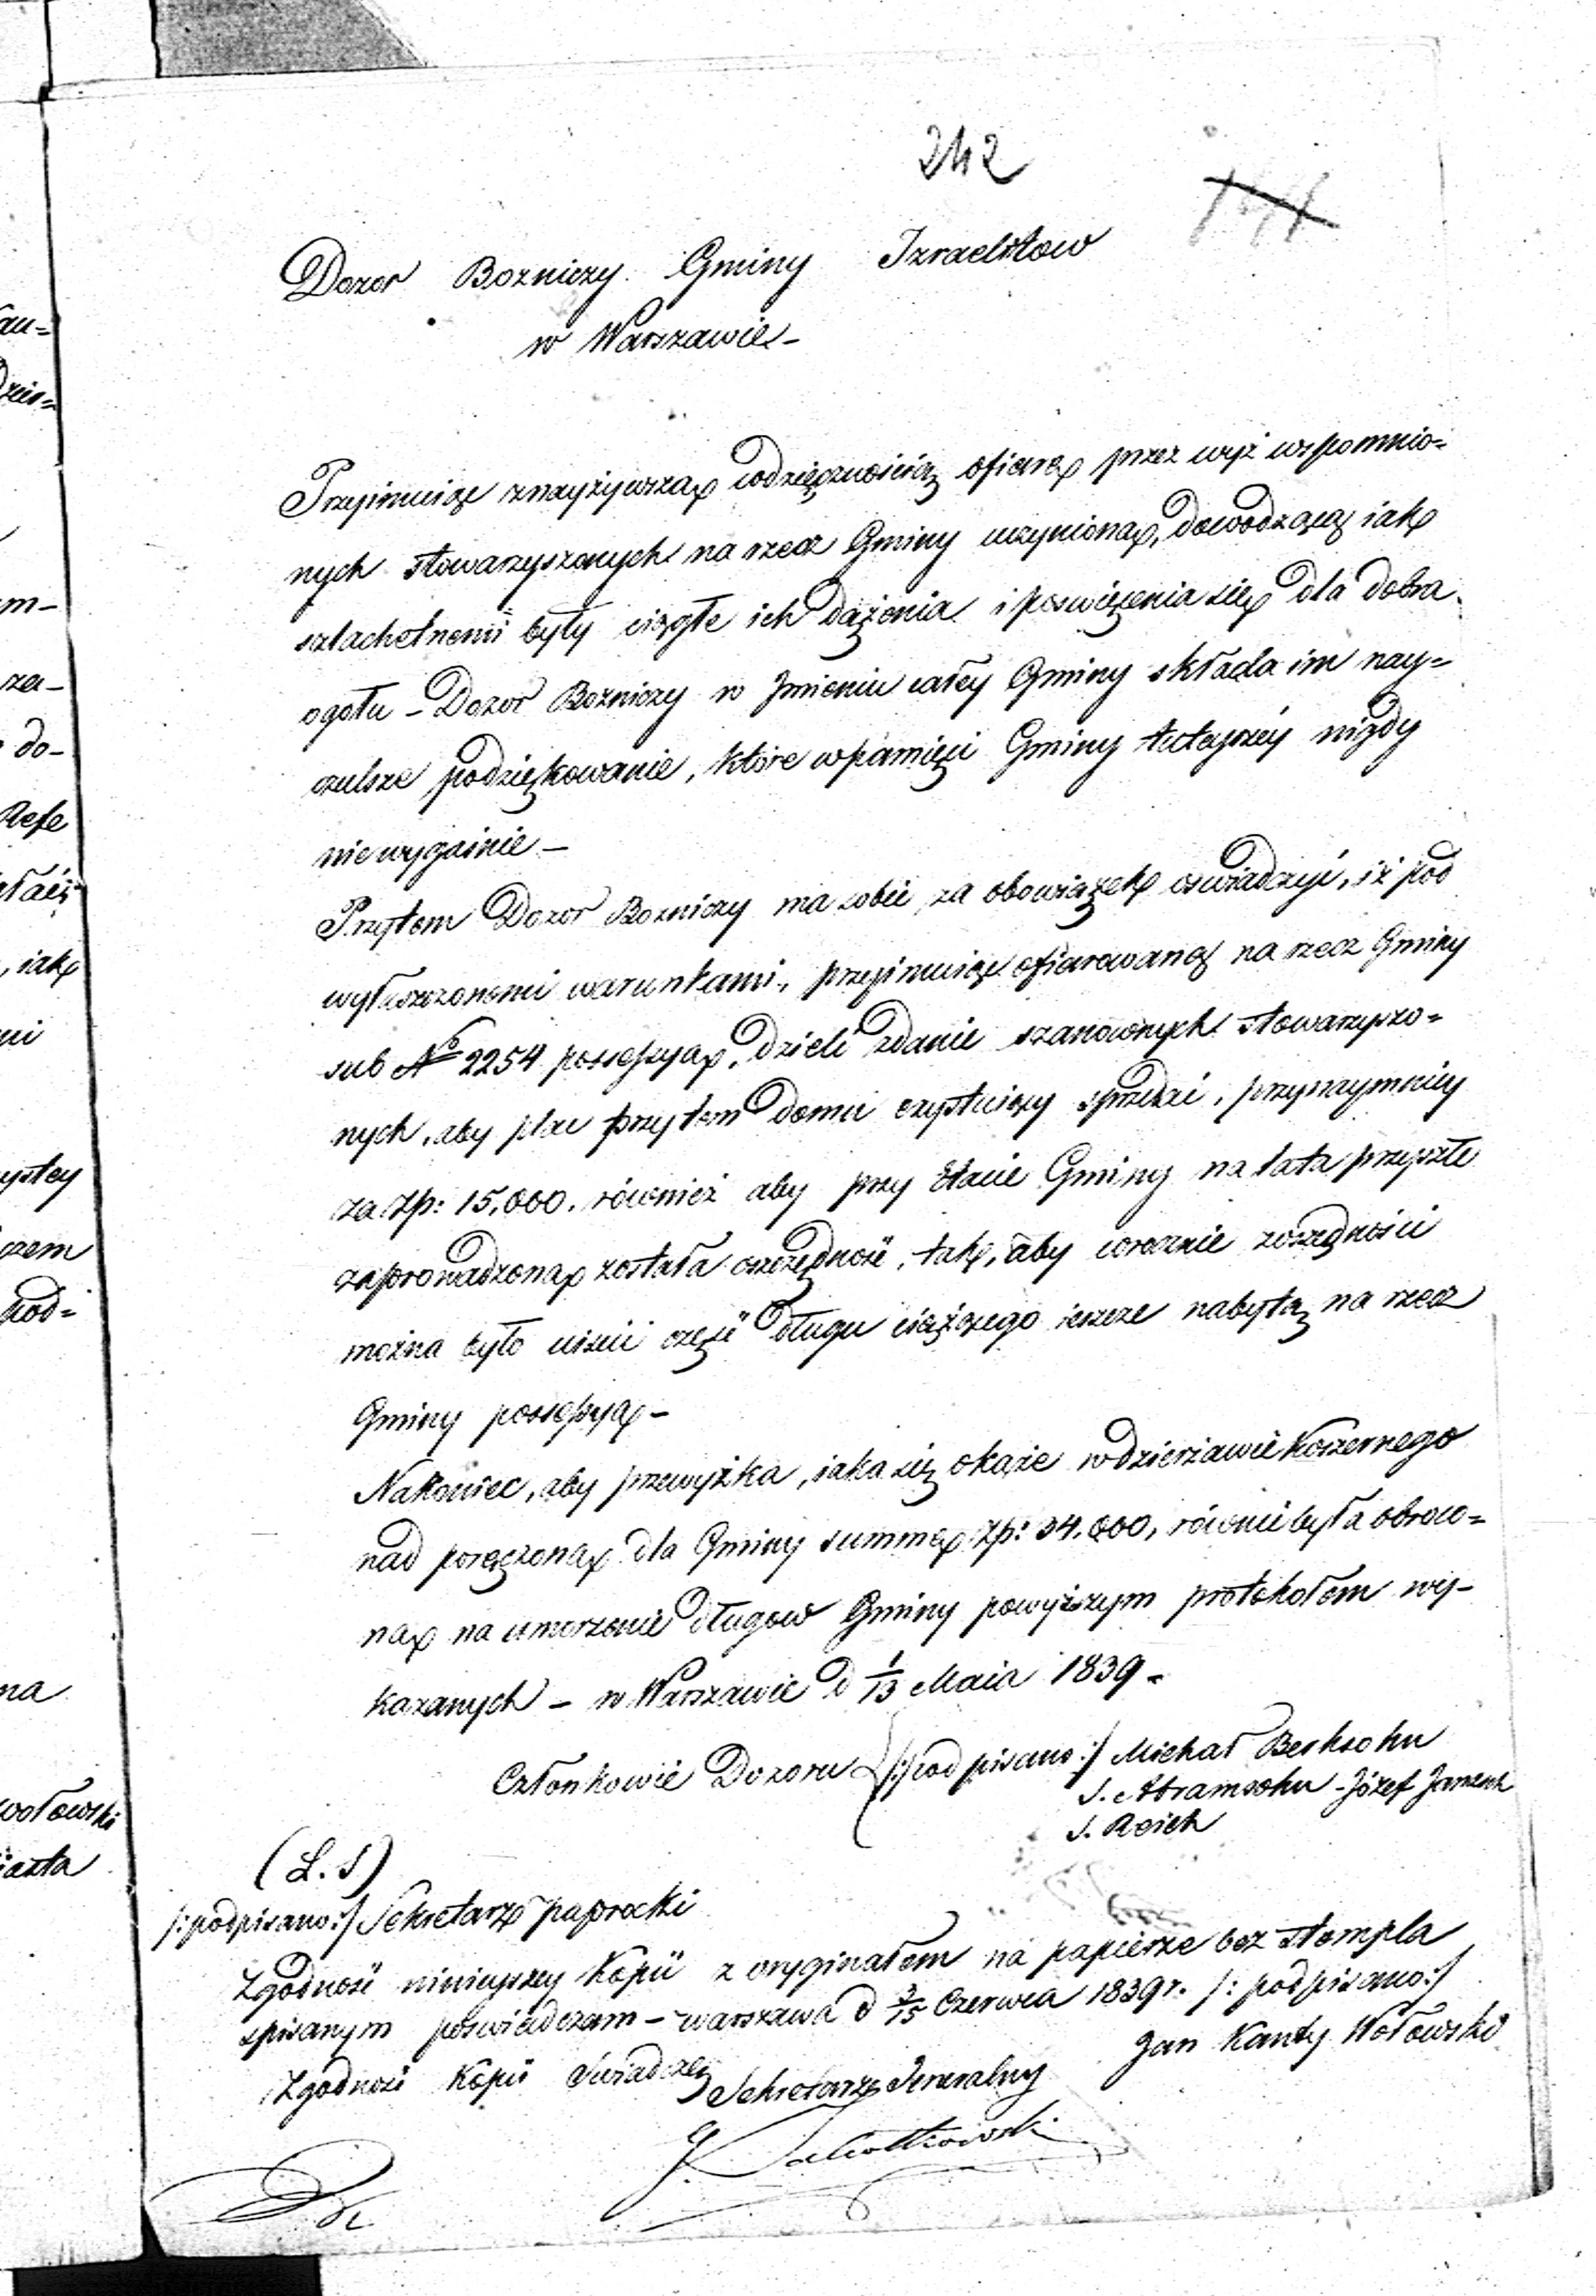 242
Dozor Bozniczy Gminy Izraelitow
w Warszawie –
Przyimuiąc znayżywszą wdzięcznością ofiarę przez wyż wspomnio=
nych stowarzyszonych na rzecz Gminy uczynioną, dowodzącą iak
szlachetnemi były ciągłe ich dążenia i poswięcenia się dla dobra
ogołu – Dozor Bozniczy w Jmieniu całey Gminy składa im nay=
czulsze podziękowanie, które w pamięci Gminy tuteyszéy nigdy
nie wygaśnie –
Przytem Dozor Bozniczy ma sobie za obowiązek oswiadczyć, iż pod
wyłuszczonemi warunkami, przyimuiąc ofiarowaną na rzecz Gminy
sub No 2254 possessyą, dzieli zdanie szanownych stowarzyszo=
nych, aby plac przy tem domu exystuiący sprzedać, przynaymniey
za Zp: 15,000. również aby przy Etacie Gminy na lata przyszłe
zaprowadzoną została oszczędność, tak, aby corocznie zoszczędności
można było uiścić część długu ciążącego ieszcze nabytą na rzecz
Gminy possessyą –
Nakoniec, aby przewyżka, iaka się okaże w dzierżawie koszernego
nad poręczoną dla Gminy summę Zp: 34,000, równie była obroco=
ną na umorzenie długow Gminy powyższym protokołem wy=
kazanych – w Warszawie d 1/13 Maia 1839 –
Członkowie Dozoru /:podpisano:/ Michał Berksohn
J. Abramsohn – Józef Janasch
J. Reich
(L. S)
/:podpisano:/ Sekretarz Paprocki
Zgodność ninieyszey Kopii z oryginałem na papierze bez stempla
spisanym poświadczam – Warszawa d 3/15 Czerwca 1839 r. /:podpisano:/
Jan Kanty Wołowski
Zgodność Kopii Swiadczę
Sekretarz Jeneralny